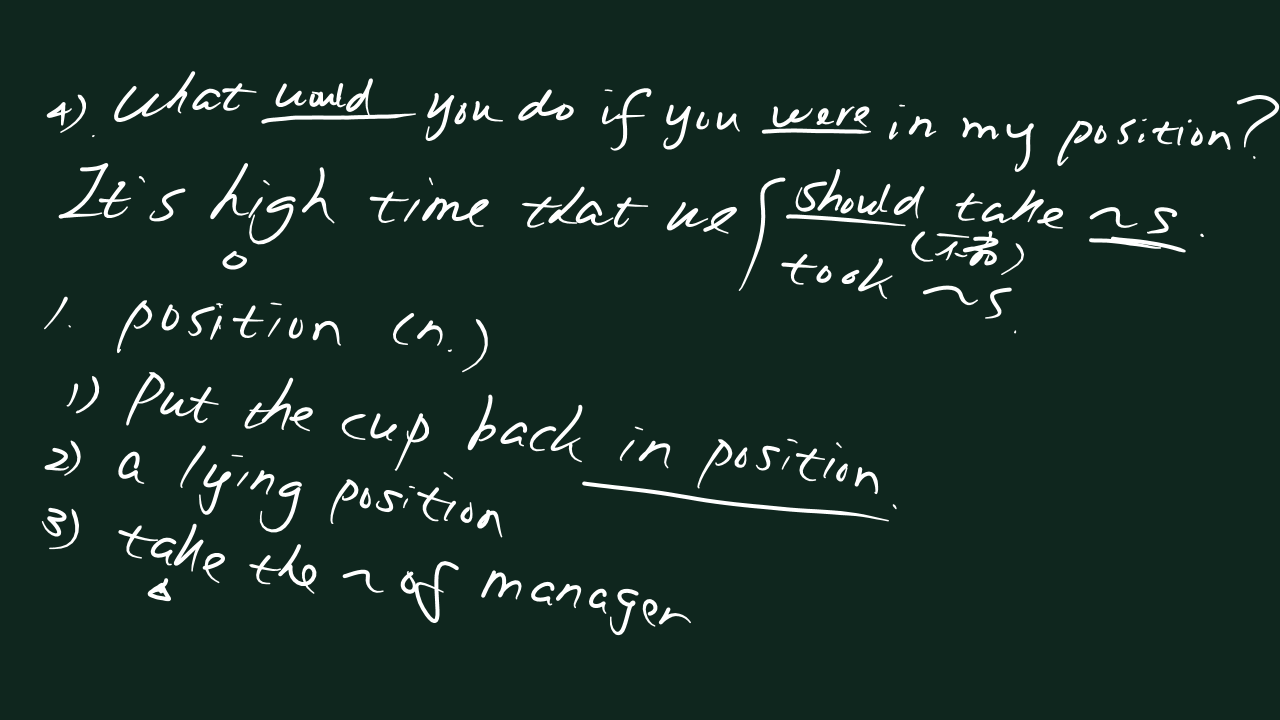 4). What would you do if you were in my position?
It's high time that we { should take ~s.
(不省)
took ~s.
1. position (n.)
1) Put the cup back in position.
2) a lying position
3) take the ~ of manager